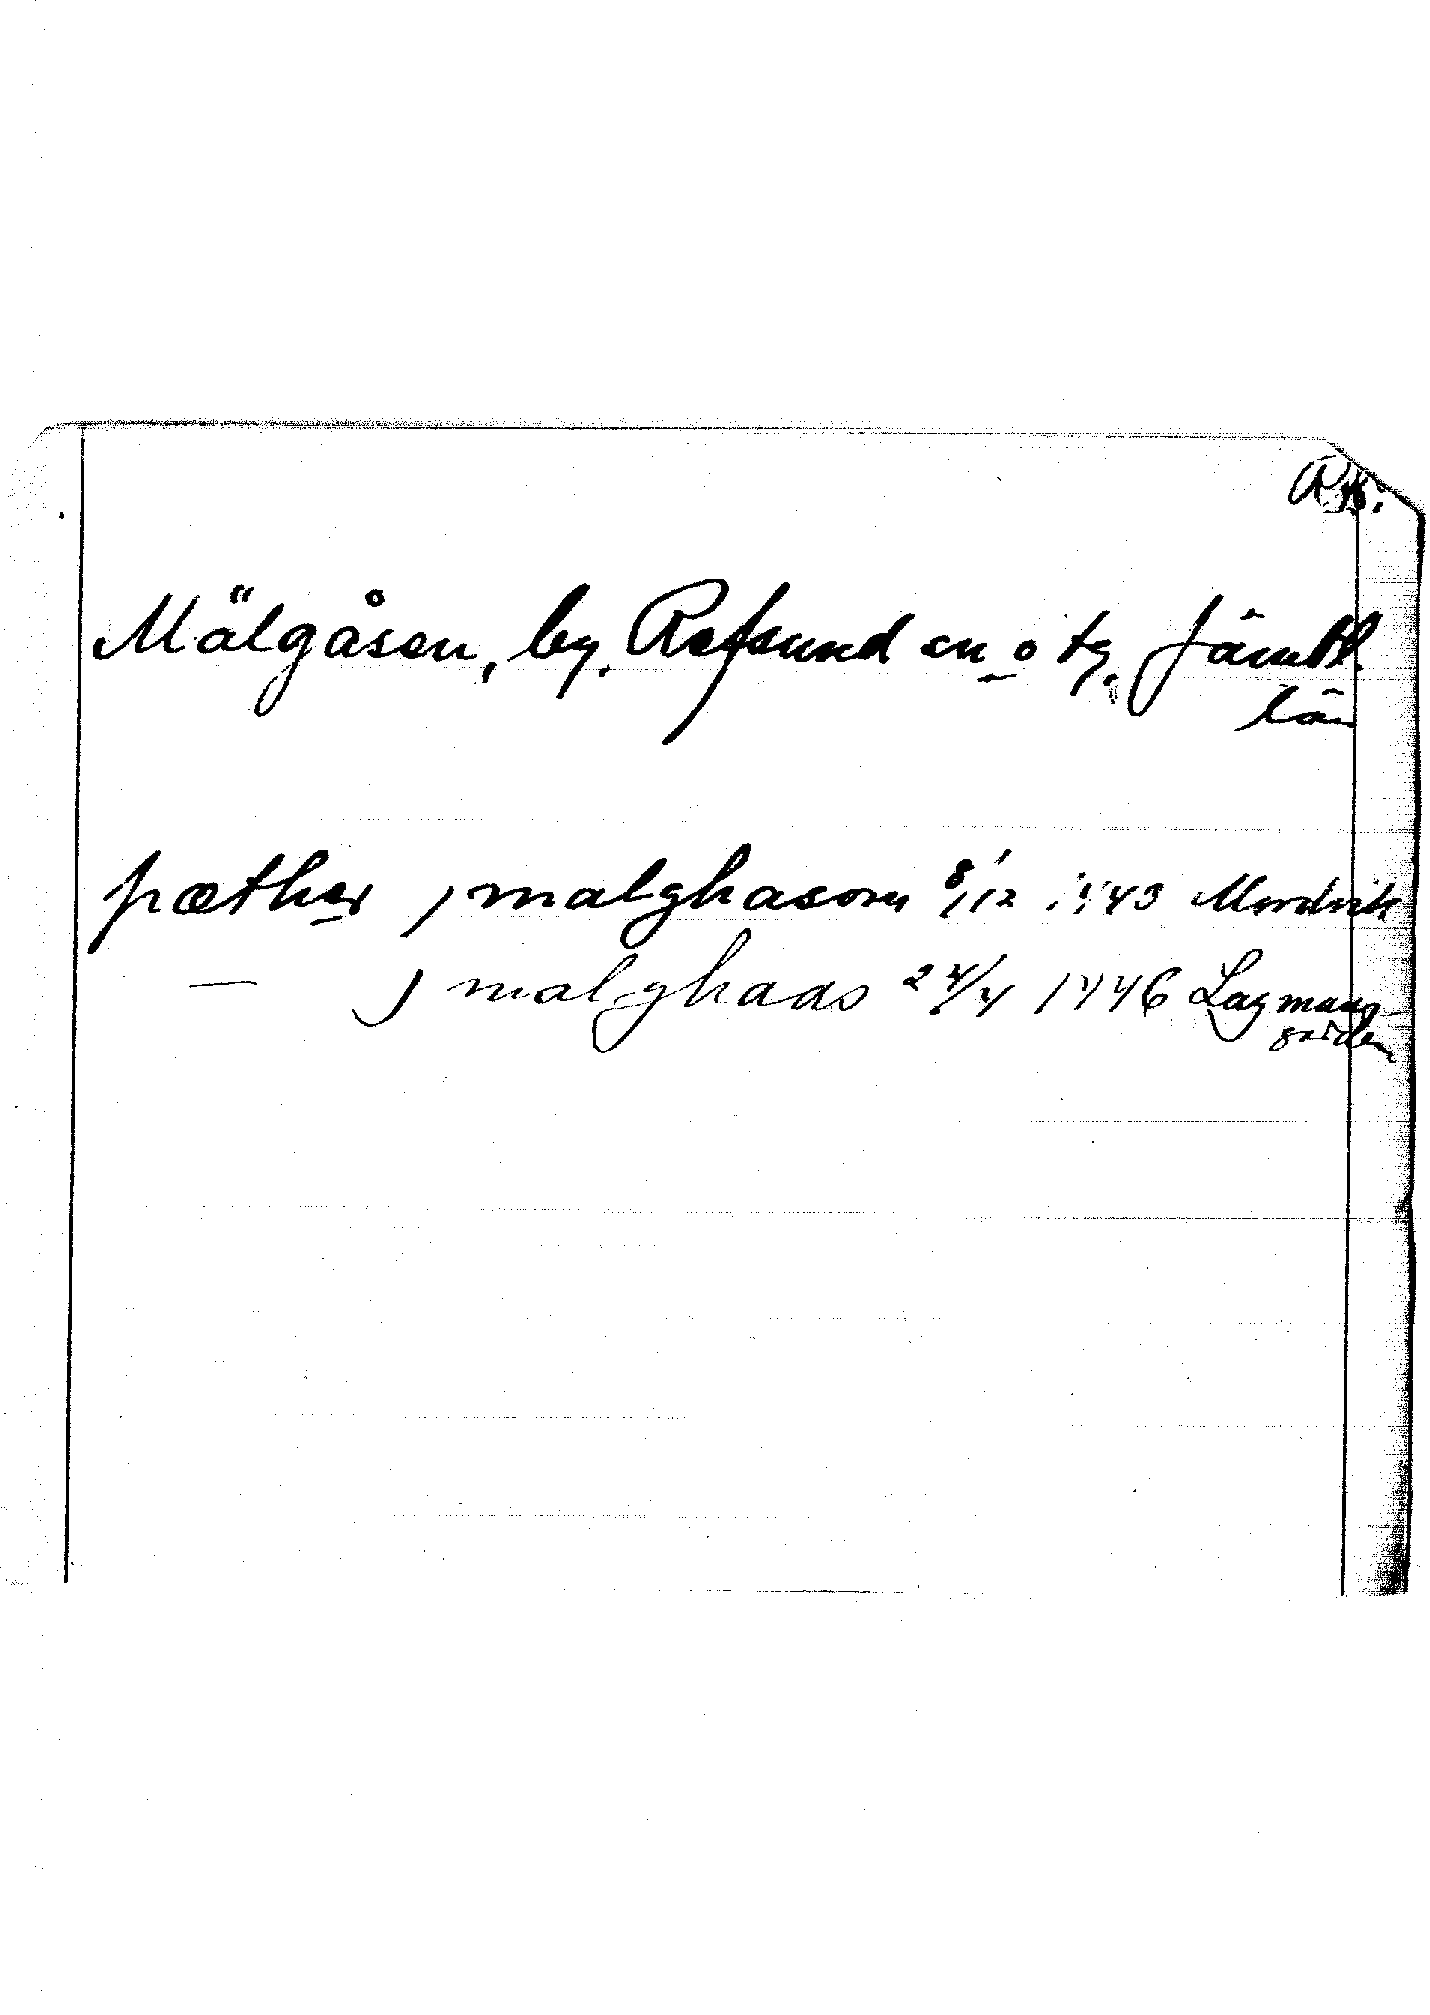 Mälgåsen, by. Refsund sn o tg. Jämtl.
län
pæther j malghasom 8/12 1443 Mordvik
— j malghaas 24/4 1446 Lagmans
gården